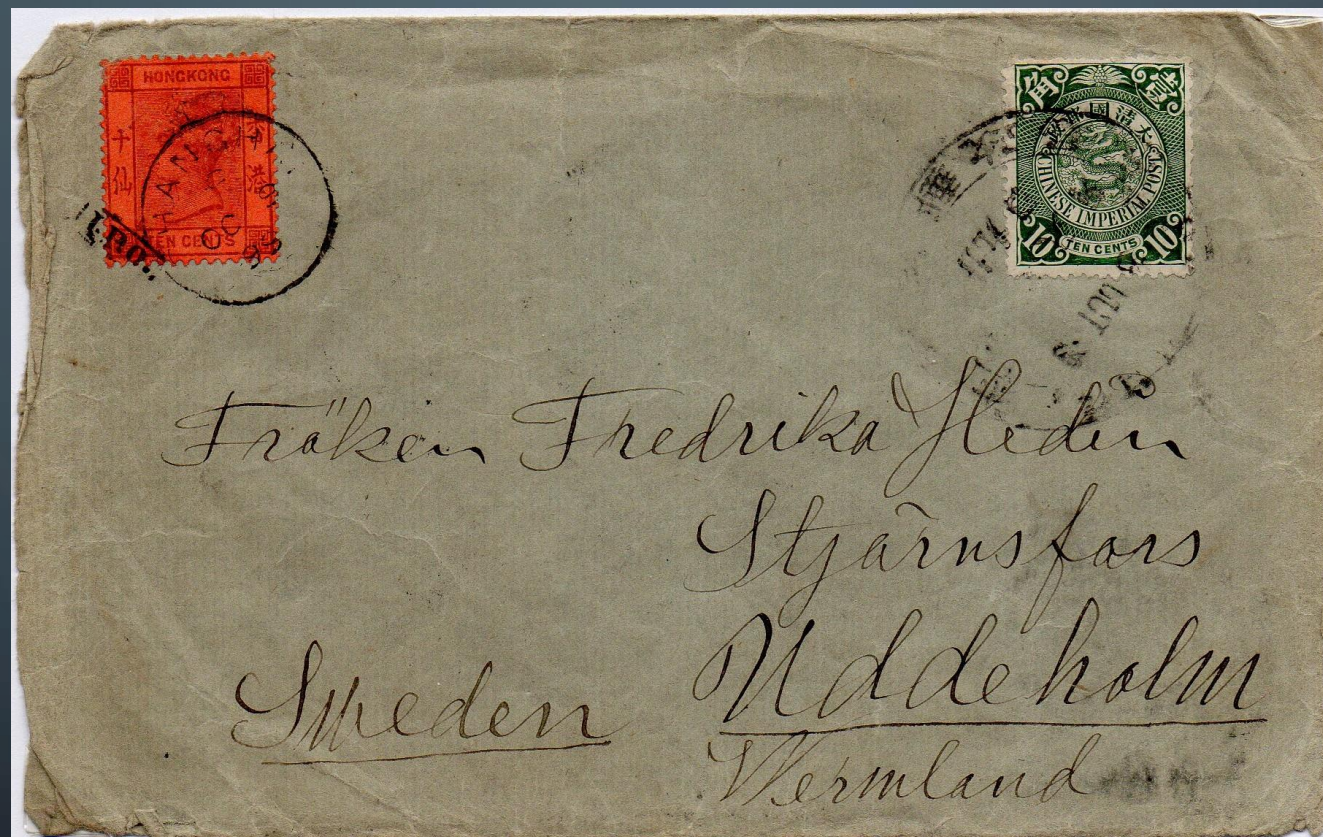 HONGKONG
十仙
香港
TEN CENTS
I.P.O.
大清國郵政
CHINESE IMPERIAL POST
10 TEN CENTS 10
OCT
Fröken Fredrika Hedin
Stjärnsfors
Uddeholm
Sweden
Wermland